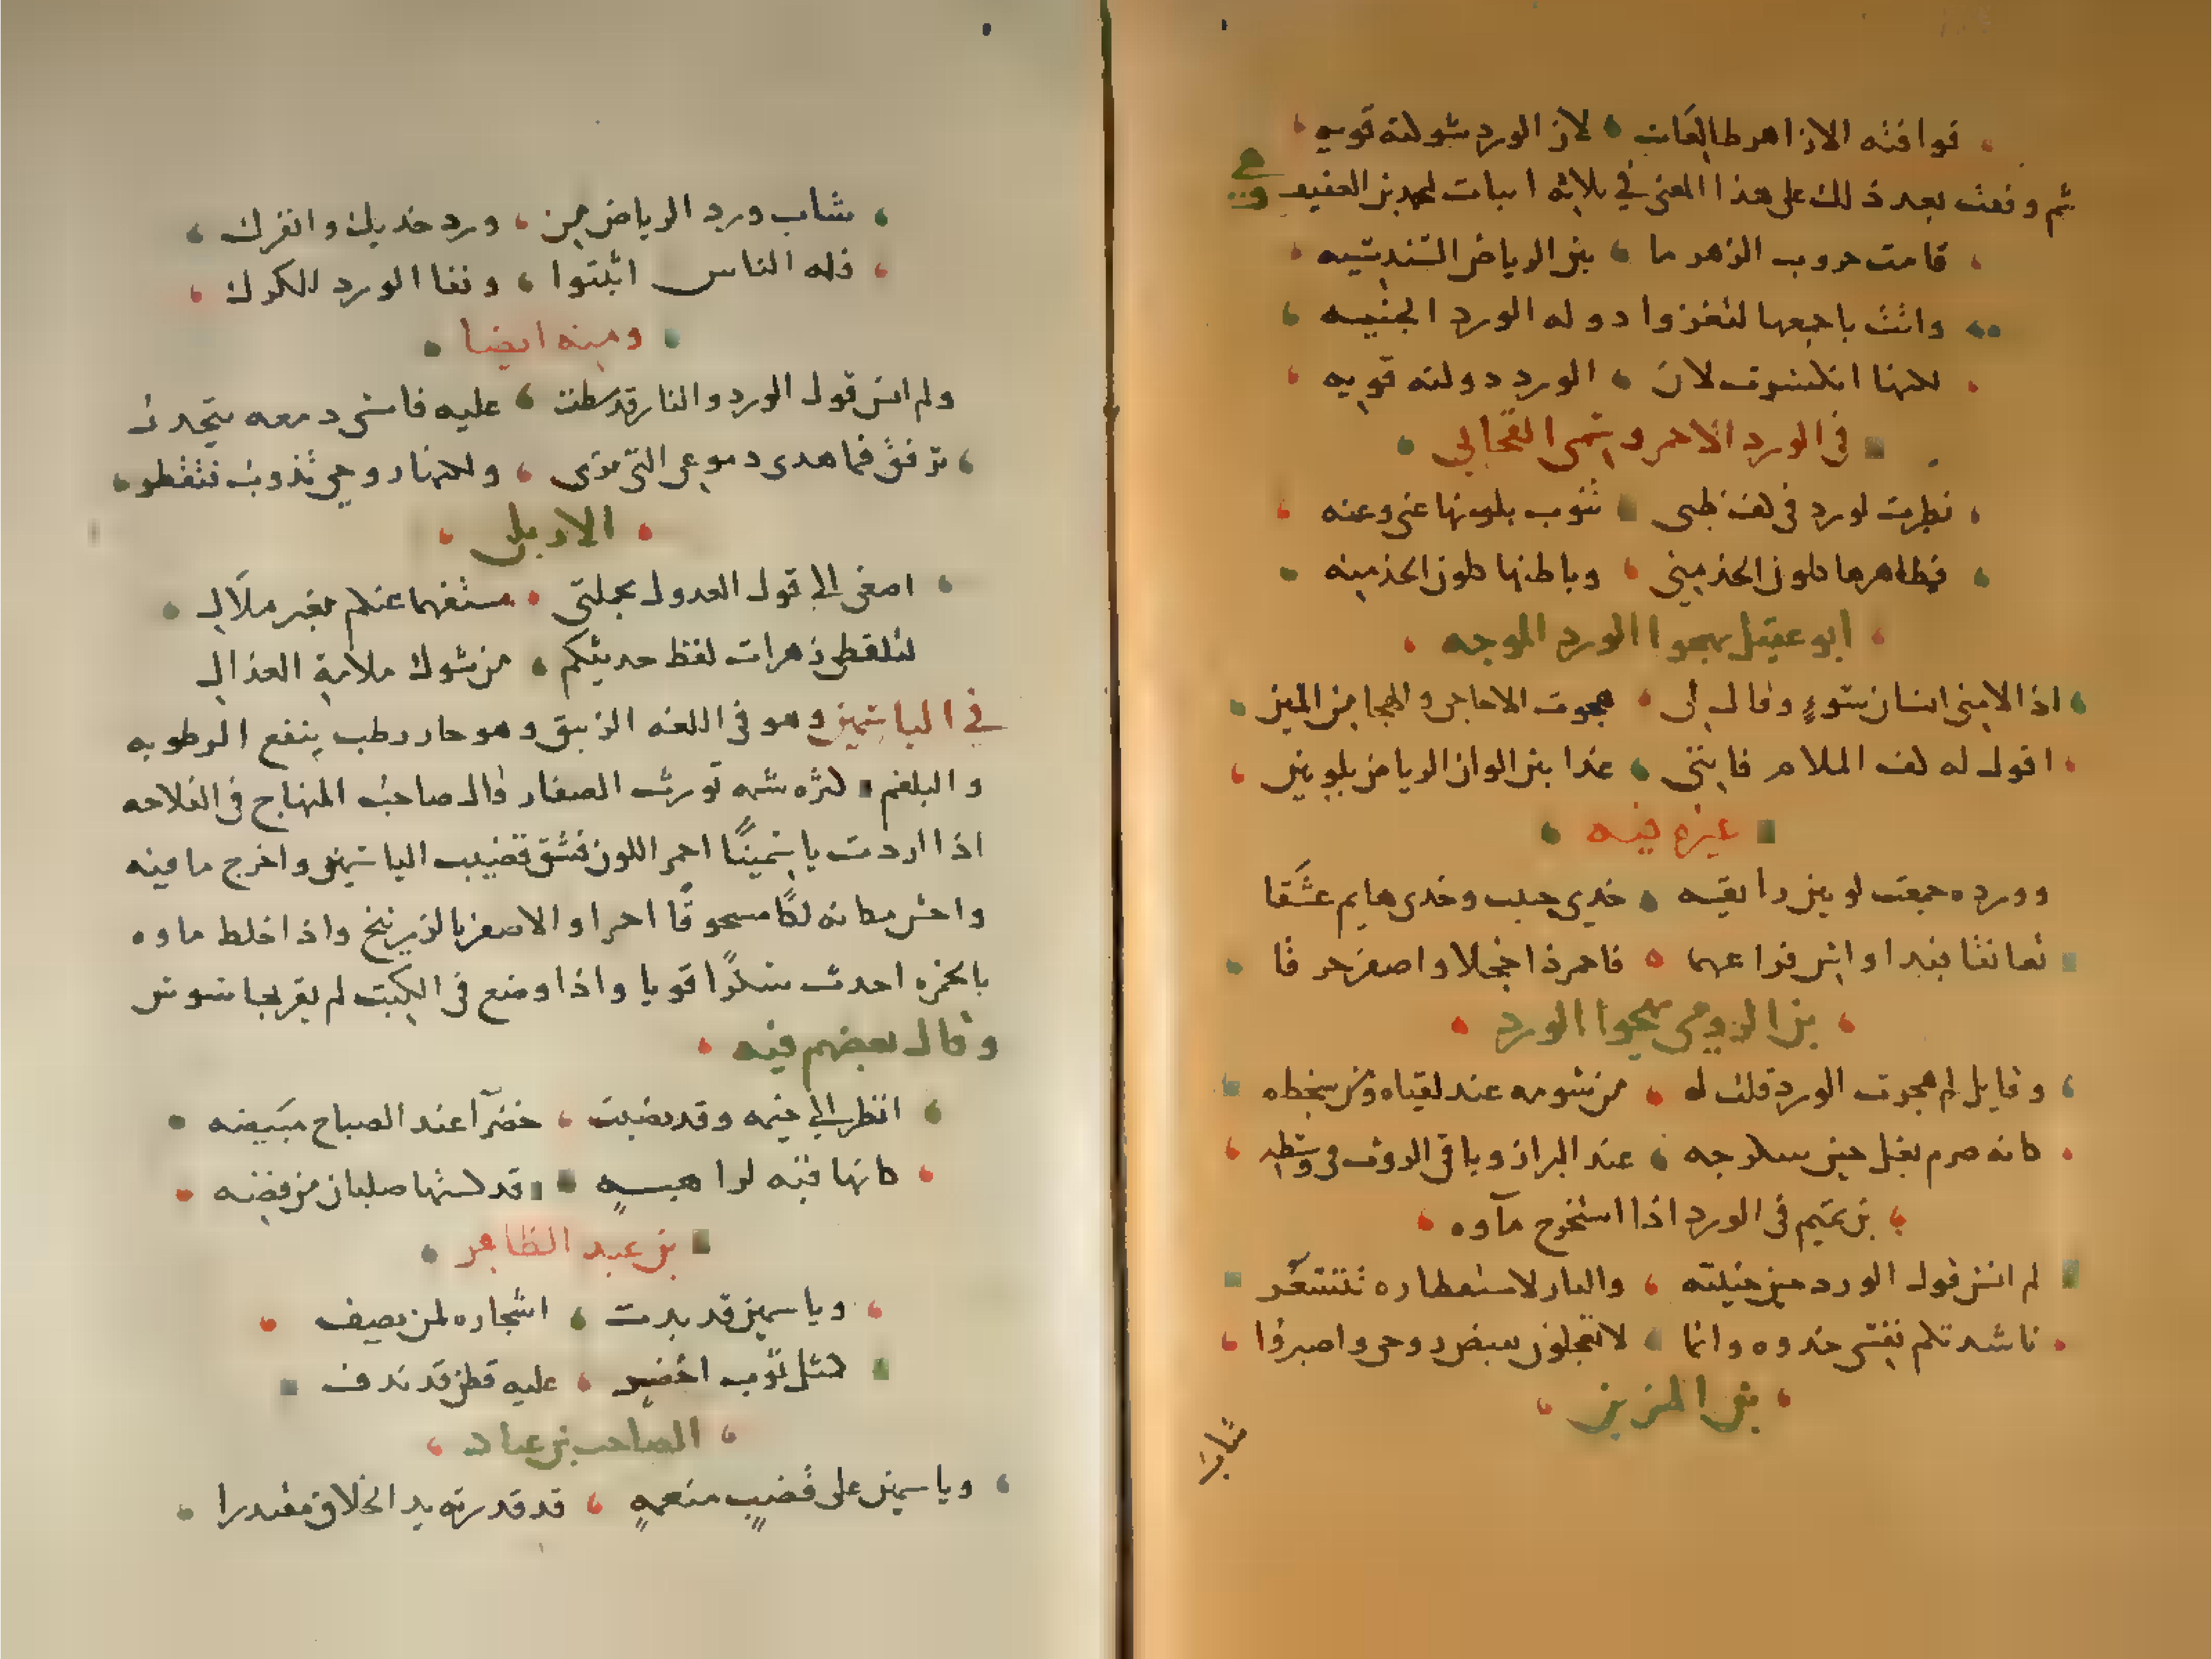 فوافته الازاهر طايعات لان الورد شوكته قويه
ثم وقفت بعد ذلك على هذا المعنى في ثلاثة ابيات لمحمد بن العفيف وهي
قامت حروب الزهر ما بين الرياض السندسيه
واتت باجمعها لتغزوا دوله الورد الجنيه
لكنها انكسرت لان الورد دولته قويه
في الورد الاحمر ويسمى القحابي
نظرت لورد في كف ظبى ينوب بلونها عنى وعنه
فظاهرها كلون الخد منى وباطنها كلون الخد منه
ابو عقيل يهجوا الورد الموجه
اذا لامنى انسان سوء وقال لى هجوت الاحاجى والهجا من المين
اقول له كف الملام فاننى غدا بين الوان الريا من بلونين
غيره فيه
وورده جمعت لونين رايقيه خدي حبيب وخدى هايم عشقا
تعانقا فبدا واش فراعهما فاحمر ذا خجلا واصفر ذا فرقا
بن الرومى يهجوا الورد
وقايل لم هجوت الورد قلت له من شومه عند لقياه ومن سخطه
كانه صرم بغل حين سكرجه عند البراز وباقى الروث فى وسطه
بن تميم في الورد اذا استخرج مآوه
لم انس قول الورد حين جنيته والنار لاستقطاره تتسعر
ناشدتكم نفسى خدوه وانما لا تعجلون بقبض روحى واصبروا
بن المزين
شاب
شاب ورد الرياض من ورد خديك وانفرك
فله الناس اثبتوا ونفا الورد للكرك
ومنه ايضا
ولم انس قول الورد والنار قد سطت عليه فامسى دمعه يتحدر
ترفق فما هدى دموعى التى ترى ولكنها روحى تذوب فتقطر
الاربلى
اصغى الى قول العدول بجملتى مستفهما عنكم بغير ملال
لتلقطى زهرات لفظ حديثكم من شوك ملامة العذال
في الياسمين وهو في اللغه الزنبق وهو حار رطب ينفع الرطوبه
والبلغم كثره شمه تورث الصفار قال صاحب المنهاج في الفلاحه
اذا اردت ياسمينًا احمر اللون فشق قضيب الياسمين واخرج ما فيه
واحش مكانه لكًا مسحوقًا احمر او الاصفر بالزرنيخ واذا خلط ماوه
بالخمره احدث سكرًا قويا واذا وضع في الكتب لم يقربها سوس
وقال بعضهم فيه
انظر الى خيمه وقد نصبت خضرآ عند الصباح مبيضه
كانها قبه لراهب قد كسيتها صلبان من فضه
بن عبد الظاهر
وياسمين قد بدت اشجاره لمن يصيف
كمثل ثوب اخضر عليه قطن قد ندف
الصاحب بن عباد
وياسمين على قضب منعمه قد قدرته يد الخلاق مقتدرا